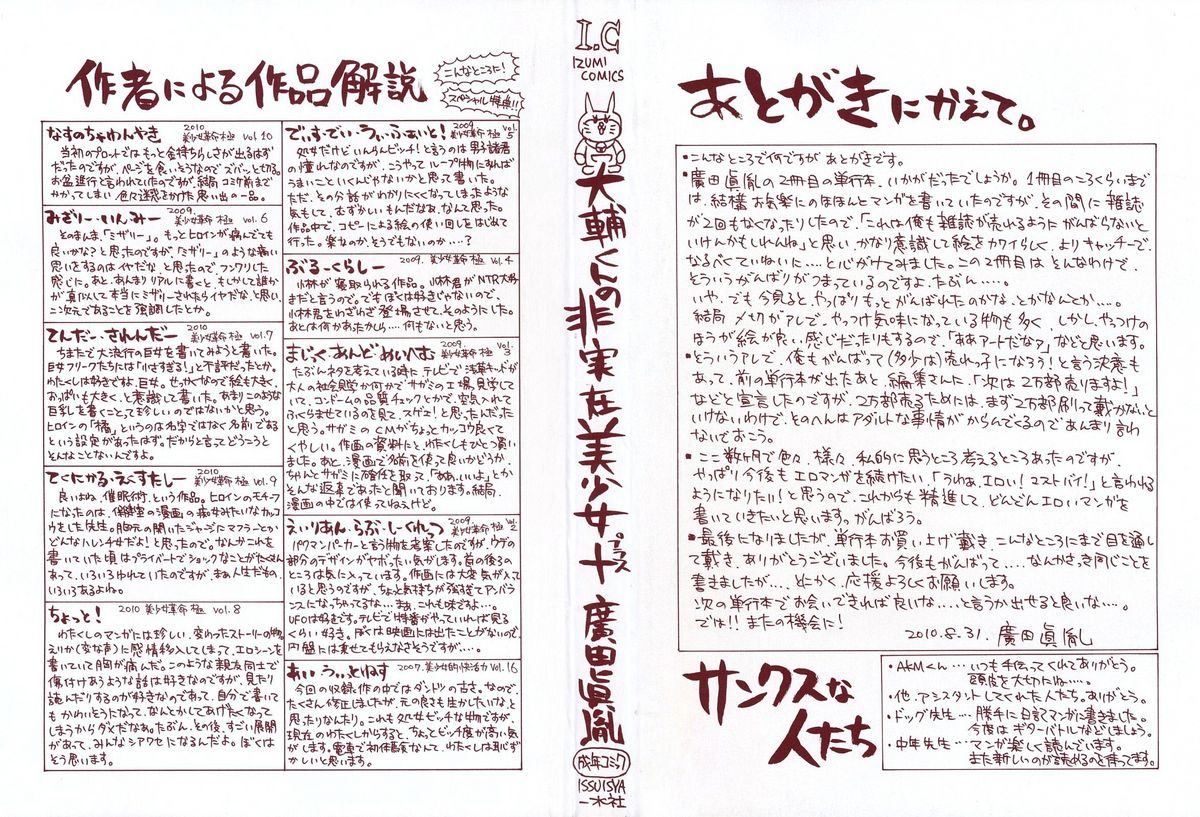 作者による作品解説
こんなところに!
スペシャル特典!!
なすのちゃわんやき
2010
美少女革命 極 Vol 10
当初のプロットではもっと金持ちらしさが出るはず
だったのですが、ページを食いそうなのでズバッと切る。
お盆進行と言われていたのですが、結局コミケ前まで
かかってしまい色々迷惑をかけた思い出の一品。
みざりー・いんみー
2009.
美少女革命 極 vol. 6
そのまんま、「ミザリー」。もっとヒロインが病んでても
良いかな?と思ったのですが、「ミザリー」のような痛い
思いをするのはイヤだな、と思ったので、フンワリした
感じに。あと、あんまりリアルに書くと、もしかして誰か
が真似して本当にミザリーされたらイヤだな、と思い、
二次元であることを強調したとか。
てんだー・されんだー
2010
美少女革命 極 vol.7
ちまたで大流行の巨女を書いてみようと書いた。
巨女フリークたちには「小さすぎる!」と不評だったとか。
わたくしは好きですね、巨女。せっかくなので絵も大きく、
おっぱいも大きく、と意識して書いた。あまりこのような
巨乳を書くことって珍しいのではないかと思う。
ヒロインの「橘」というのは名字ではなく名前である
という設定があったはず。だからと言ってどうこうと
そんなことないんですよ。
てくにかる・えくすたしー
2010
美少女革命 極 vol. 9
良いよね、催眠術、という作品。ヒロインのモチーフ
になったのは、保健室の漫画の痴女みたいなカッコ
ウをした先生。胸元の開いたジャージにマフラーとか
どんなハレンチ女だよ!と思ったので。なんかこれを
書いていた頃はプライバートでショックなことがたくさん
あって、いろいろゆれていたのですが、まぁ人生だもの、
いろいろあるよね。
ちょっと!
2010 美少女革命 極 vol. 8
わたくしのマンガには珍しい、変わったストーリーの物。
えりか(変な声)に感情移入してしまって、エロシーンを
書いていて胸が痛んだ。このような親友同士で
傷付けあうような話は好きなのですが、見たり
読んだりするのが好きなのであって、自分で書いて
もかわいそうになって、なんとかしてあげたくなって
しまうからダメだなぁ。たぶん、その後、すごい展開
があって、みんなシアワセになるんだよ。ぼくは
そう思います。
でぃすでい・うぃ・ふぁいと!
2009
美少女革命 極 Vol. 5
処女だけどいんらんビッチ!と言うのは男子諸君
の憧れなのですが、こうやってループ物にすれば
うまいこといくんじゃないかと思って書いた。
ただ、その分話がわかりにくくなってしまったような
気もして、むずかしいもんだなぁ、なんて思った。
作品中で、コピーによる絵の使い回しをはじめて
行った。楽なのか、そうでもないのか・・・・?
ぶるーくらしー
2009. 美少女革命 極 vol. 4
小林が寝取られる作品。小林君がNTR大好
まだと言うので。でもぼくは好きじゃないので、
小林君をわざわざ登場させて、そのようにした。
あとは何かあったかしら・・・・何もないと思う。
まじっく・あんど・めいへむ
2009.
美少女革命 極 vol. 3
たぶんネタを考えている時に、テレビで浅草キッドが
大人の社会見学か何かでサガミの工場見学して
いて、コンドームの品質チェックとかで、空気入れて
ふくらませているのを見て、スゲェ!と思ったんだった
と思う。サガミのCMがちょっとカッコウ良くて
くやしい。作画の資料だと、わたくしもひとつ買い
ました。あと、漫画で名前を使って良いかどうか、
ちゃんとサガミに確認を取って、「ああ、いいよ」とか
そんな返事であったと聞いております。結局、
漫画の中では使ってねぇけど。
えいりあん・らぶ・しーくれっつ
2009.
美少女革命 極 Vol. 2
パクマンパーカーと言う物を考案したのですが、ウデの
部分のデザインがヤボったい気がします。首の後ろの
ところは気に入っています。作画には大変気が入って
いると思うのですが、ちょっと気持ちが強すぎてアンバラ
ンスになっちゃってるな・・・まぁ、これも味ですよ・・・。
UFOは好きです。テレビで特番がやっていれば見る
くらい好き。ぼくは映画には出たことがないので、
円盤には乗せてもらえなさそうですが・・・・。
あい・うぃっとねす
2007. 美少女的快活力 Vol. 16
今回の収録作の中ではダントツの古さ。なので、
たくさん修正しましたが、元の良さも生かしたいな、と
思ったなんたり。これも処女ビッチな物ですが、
現在のわたくしからすると、ちょっとビッチ度が高い気
がします。電車で初体験なんて、わたくしは恥ず
かしいと思います。
I.C
IZUMI
COMICS
大輔くんの非実在美少女+
プラス
廣田眞胤
成年コミック
ISSUISYA
一水社
あとがきにかえて。
・こんなところで何ですが、あとがきです。
・廣田眞胤の2冊目の単行本、いかがだったでしょうか。1冊目のころくらいまで
は、結構お気楽にのほほんとマンガを書いていたのですが、その間に雑誌
が2回もなくなったりしたので、「これは俺も雑誌が売れるようにがんばらないと
いけんかもしれんね」と思い、かなり意識して絵をカワイらしく、よりキャッチーで、
なるべくていねいに・・・・と心がけてみました。この2冊目はそんなわけで、
そういうがんばりがつまっているのですよ、たぶん・・・・。
いや、でも今見ると、やっぱりもっとがんばれたのかな、とかなんとか・・・。
結局〆切がアレで、やっつけ気味になっている物も多く、しかし、やっつけの
ほうが絵が良い感じだったりもするので、「ああアートだなァ」などと思います。
・とういうアレで、俺もがんばって(多少は)売れっ子になろう!と言う決意も
あって、前の単行本が出たあと、編集さんに、「次は2万部売りますよ!」
などと宣言したのですが、2万部売るためには、まず2万部刷って戴かないと
いけないわけで、そのへんはアダルトな事情がからんでくるので、あんまり言わ
ないでおこう。
・ここ数ヶ月で色々、様々、私的に思うところ考えるところあったのですが、
やっぱり今後もエロマンガを続けたい、「うわぁ、エロい!マストバイ!」と言われる
ようになりたい!と思うので、これからも精進して、どんどんエロいマンガを
書いていきたいと思いますっ。がんばろう。
・最後になりましたが、単行本お買い上げ戴き、こんなところにまで目を通し
て戴き、ありがとうございました。今後もがんばって・・・・なんかさっき同じことを
書きましたが・・・・とにかく、応援よろしくお願いします。
次の単行本でお会いできれば良いな・・・・と言うか出せると良いな・・・・。
では!!またの機会に!
2010. 8. 31. 廣田眞胤
サンクスな
人たち
・AKMくん・・・いつも手伝ってくれてありがとう。
頭皮を大切にね・・・・。
・他、アシスタントしてくれた人たち、ありがとう。
・ドッグ先生・・・勝手に日記マンガに書きました。
今度はギターバトルなどしましょう。
・中年先生・・・マンガ楽しく読んでいます。
また新しいのが読めるのを待ってます。